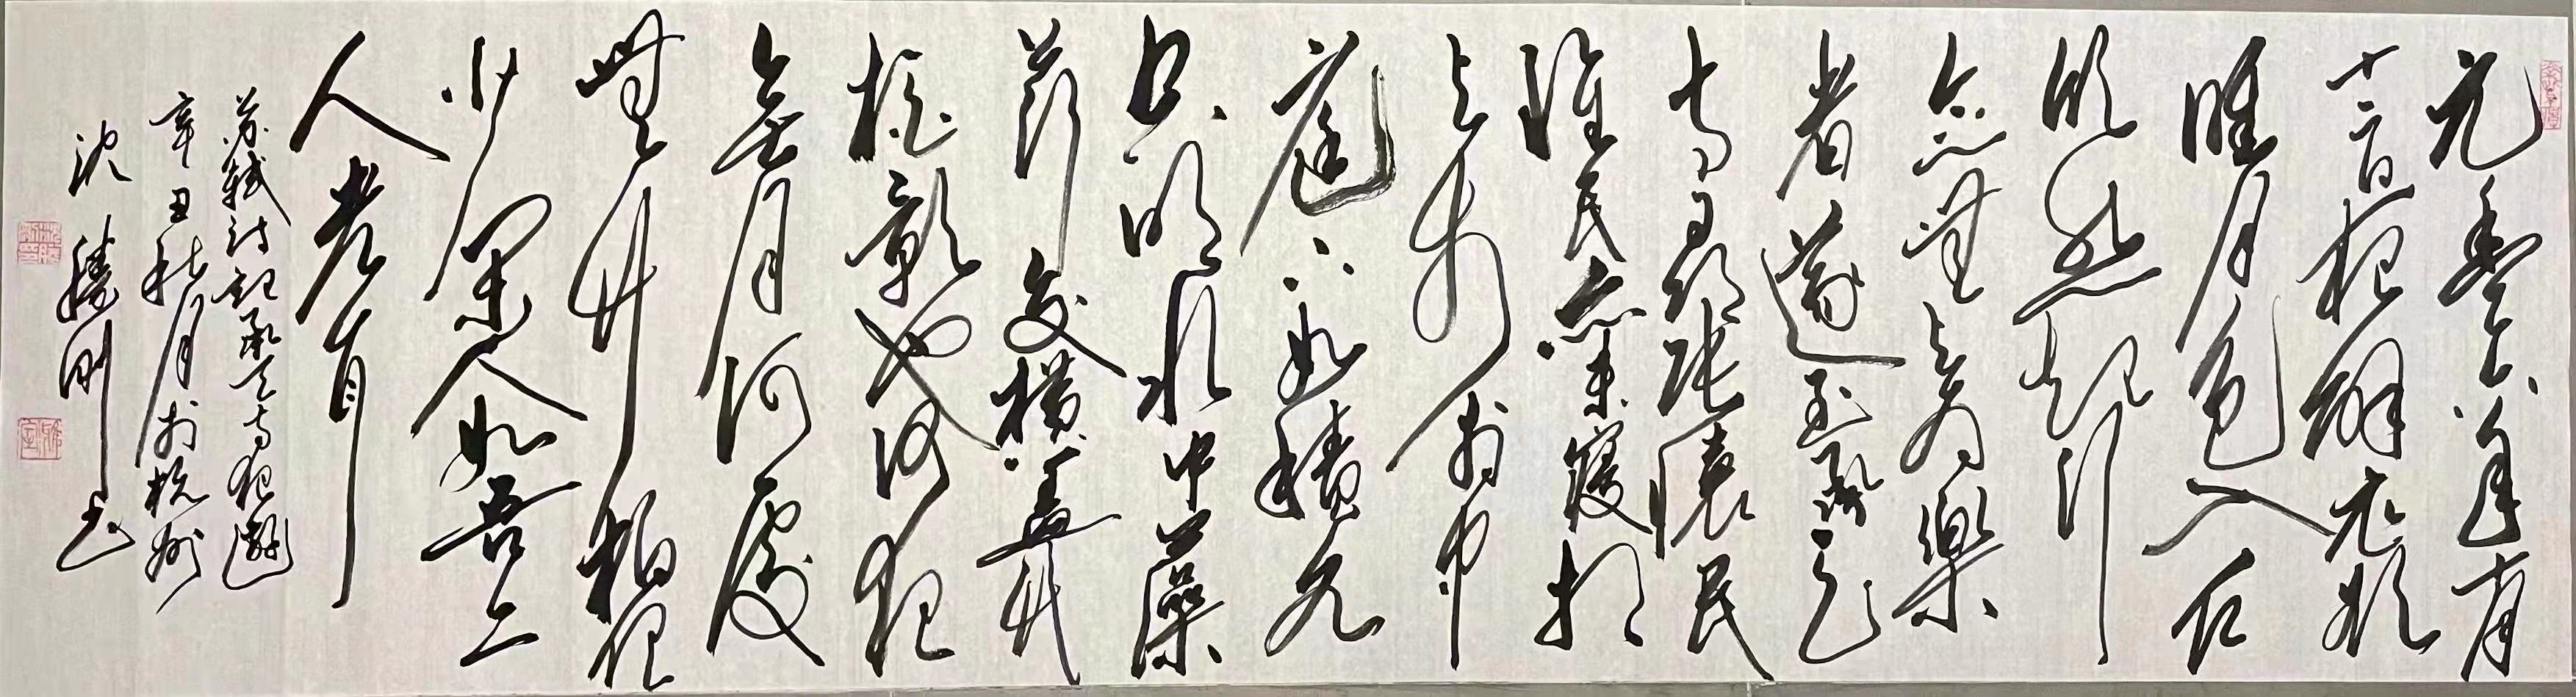 元豐六年十月
十二日夜解衣欲
睡月色入户
欣然起行
念無与為樂
者遂至承天
寺尋張懷民
懷民亦未寢相
与步於中
庭庭下如積水
空明水中藻
荇交橫蓋竹
柏影也何夜
無月何處
無竹柏但
少閑人如吾兩
人者耳
蘇軾詩記承天寺夜遊
辛丑秋月於杭州
沈勝剛書